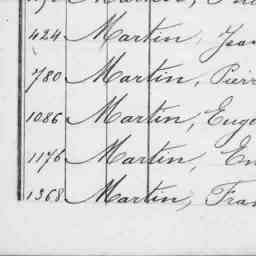 424 Martin, Jean
780 Martin, Pierr
1086 Martin, Euge
1176 Martin, Em
1368 Martin, Fran